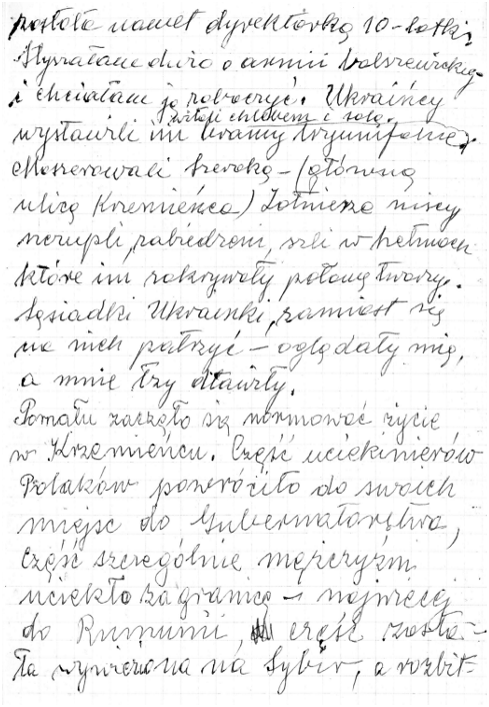 została nawet dyrektorką 10-latki,
Słyszałam dużo o armii bolszewickiej
i chciałam ją zobaczyć. Ukraińcy
witali chlebem i solą.
wystawili im bramy tryumfalne,
Maszerowali Szeroką – (główną
ulicą Krzemieńca) Żołnierze niscy
szczupli, zabiedzeni, szli w hełmach
które im zakrywały połowę twarzy.
Sąsiadki Ukrainki, zamiast się
na nich patrzyć – oglądały mię,
a mnie łzy dławiły.
Pomału zaczęło się normować życie
w Krzemieńcu. Część uciekinierów
Polaków powróciło do swoich
miejsc do Gubernatorstwa,
część szczególnie mężczyzn
uciekło zagranicę – najwięcej
do Rumunii, część zosta-
ła wywieziona na Sybir, a rozbit-